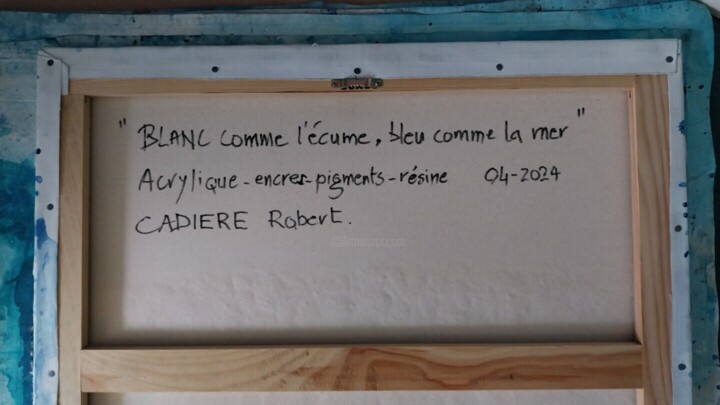 "BLANC comme l'écume, bleu comme la mer"
Acrylique - encres - pigments - résine 04-2024
CADIERE Robert.